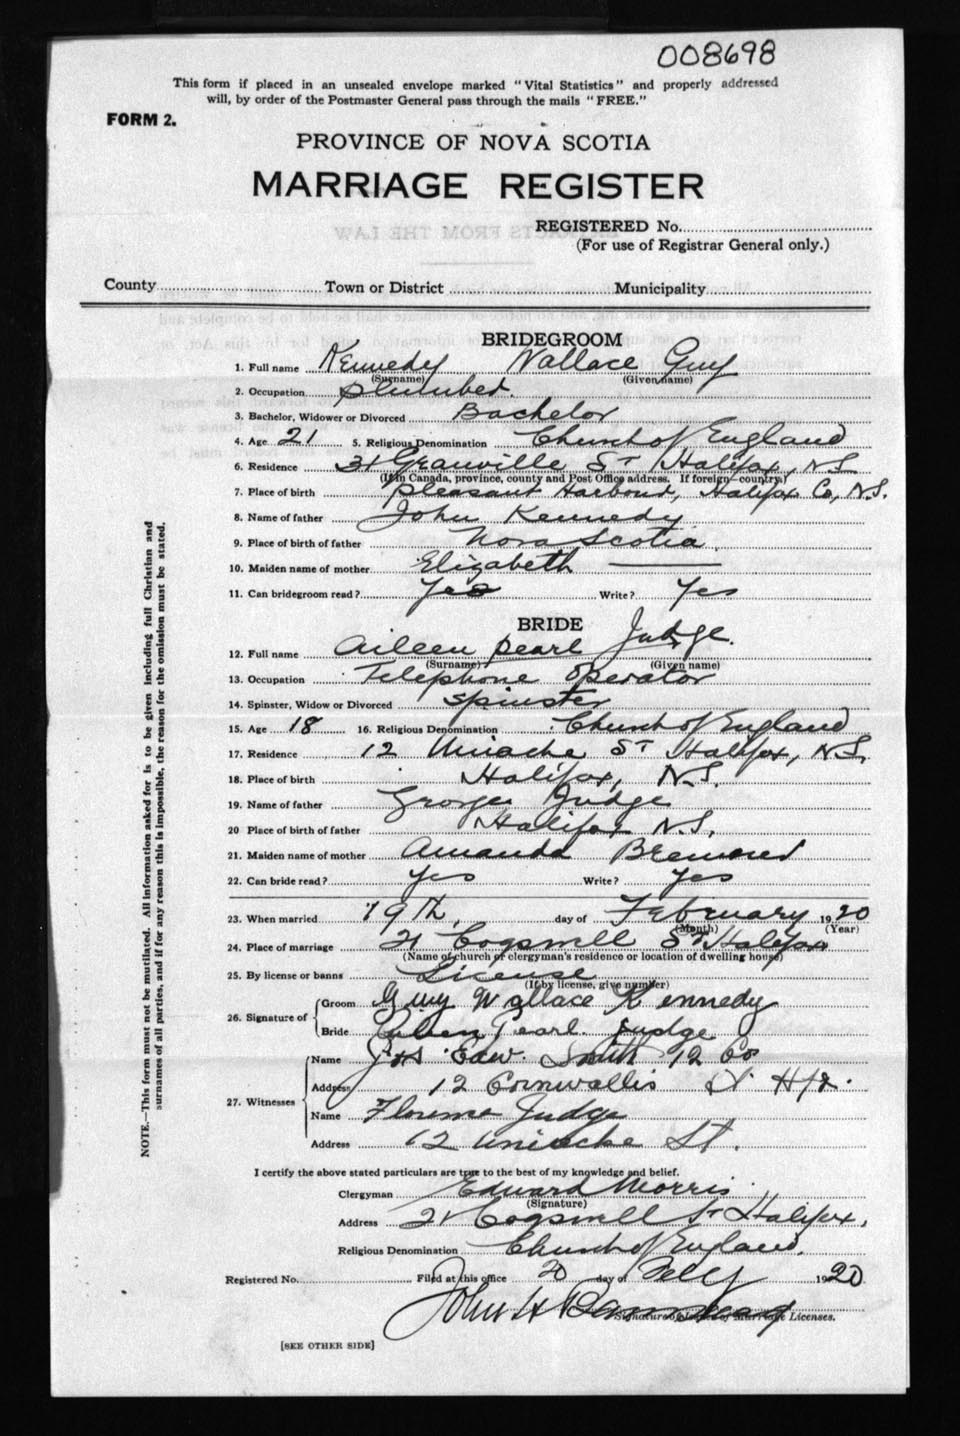 008698
This form if placed in an unsealed envelope marked "Vital Statistics" and properly addressed
will, by order of the Postmaster General pass through the mails "FREE."
FORM 2.
PROVINCE OF NOVA SCOTIA
MARRIAGE REGISTER
REGISTERED No.
(For use of Registrar General only.)
County Town or District Municipality
BRIDEGROOM
1. Full name Kennedy Wallace Guy
(Surname) (Given name)
2. Occupation plumber.
3. Bachelor, Widower or Divorced Bachelor
4. Age 21 5. Religious Denomination Church of England
6. Residence Granville St Halifax, N.S.
(If in Canada, province, county and Post Office address. If foreign—country.)
7. Place of birth Pleasant Harbour, Halifax Co, N.S.
8. Name of father John Kennedy
9. Place of birth of father Nova Scotia
10. Maiden name of mother Elizabeth
11. Can bridegroom read? Yes Write? Yes
BRIDE
12. Full name Aileen Pearl Judge.
(Surname) (Given name)
13. Occupation Telephone Operator
14. Spinster, Widow or Divorced Spinster
15. Age 18 16. Religious Denomination Church of England
17. Residence 12 Uniacke St Halifax, N.S.
18. Place of birth Halifax, N.S.
19. Name of father George Judge
20 Place of birth of father Halifax N.S.
21. Maiden name of mother Amanda
22. Can bride read? yes Write? yes
23. When married 19th, day of February 1920
(Month) (Year)
24. Place of marriage 21 Cogswell St Halifax
(Name of church of clergyman's residence or location of dwelling house)
25. By license or banns License
(If by license, give number)
26. Signature of Groom Guy Wallace Kennedy
Bride Aileen Pearl Judge
27. Witnesses Name Edw. Smith 12 Co
Address 12 Cornwallis St Hfx.
Name Florence Judge
Address 12 Uniacke St.
I certify the above stated particulars are true to the best of my knowledge and belief.
Clergyman Edward Morris
(Signature)
Address 21 Cogswell St Halifax,
Religious Denomination Church of England.
Registered No. Filed at this office 20 day of Feby 1920
John H
Signature of Issuer of Marriage Licenses.
[SEE OTHER SIDE]
NOTE.—This form must not be mutilated. All information asked for is to be given including full Christian and
surnames of all parties, and if for any reason this is impossible, the reason for the omission must be stated.